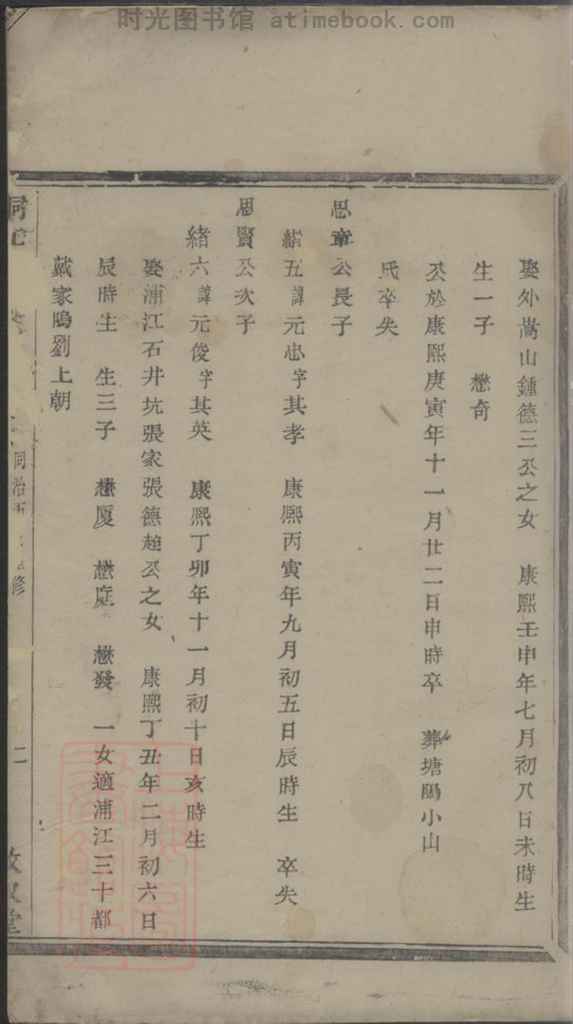 时光图书馆 atimebook.com
娶外嵩山鍾德三公之女 康熙壬申年七月初八日未時生
生一子 懋奇
公於康熙庚寅年十一月廿二日申時卒 葬塘塢小山
氏卒失
思章公長子
緒五諱元忠字其孝 康熙丙寅年九月初五日辰時生 卒失
思賢公次子
緒六諱元俊字其英 康熙丁卯年十一月初十日亥時生
娶浦江石井坑張家張德超公之女 康熙丁丑年二月初六日
辰時生 生三子 懋厦 懋庭 懋發 一女適浦江三十都
戴家塢劉上朝
同治 修 二